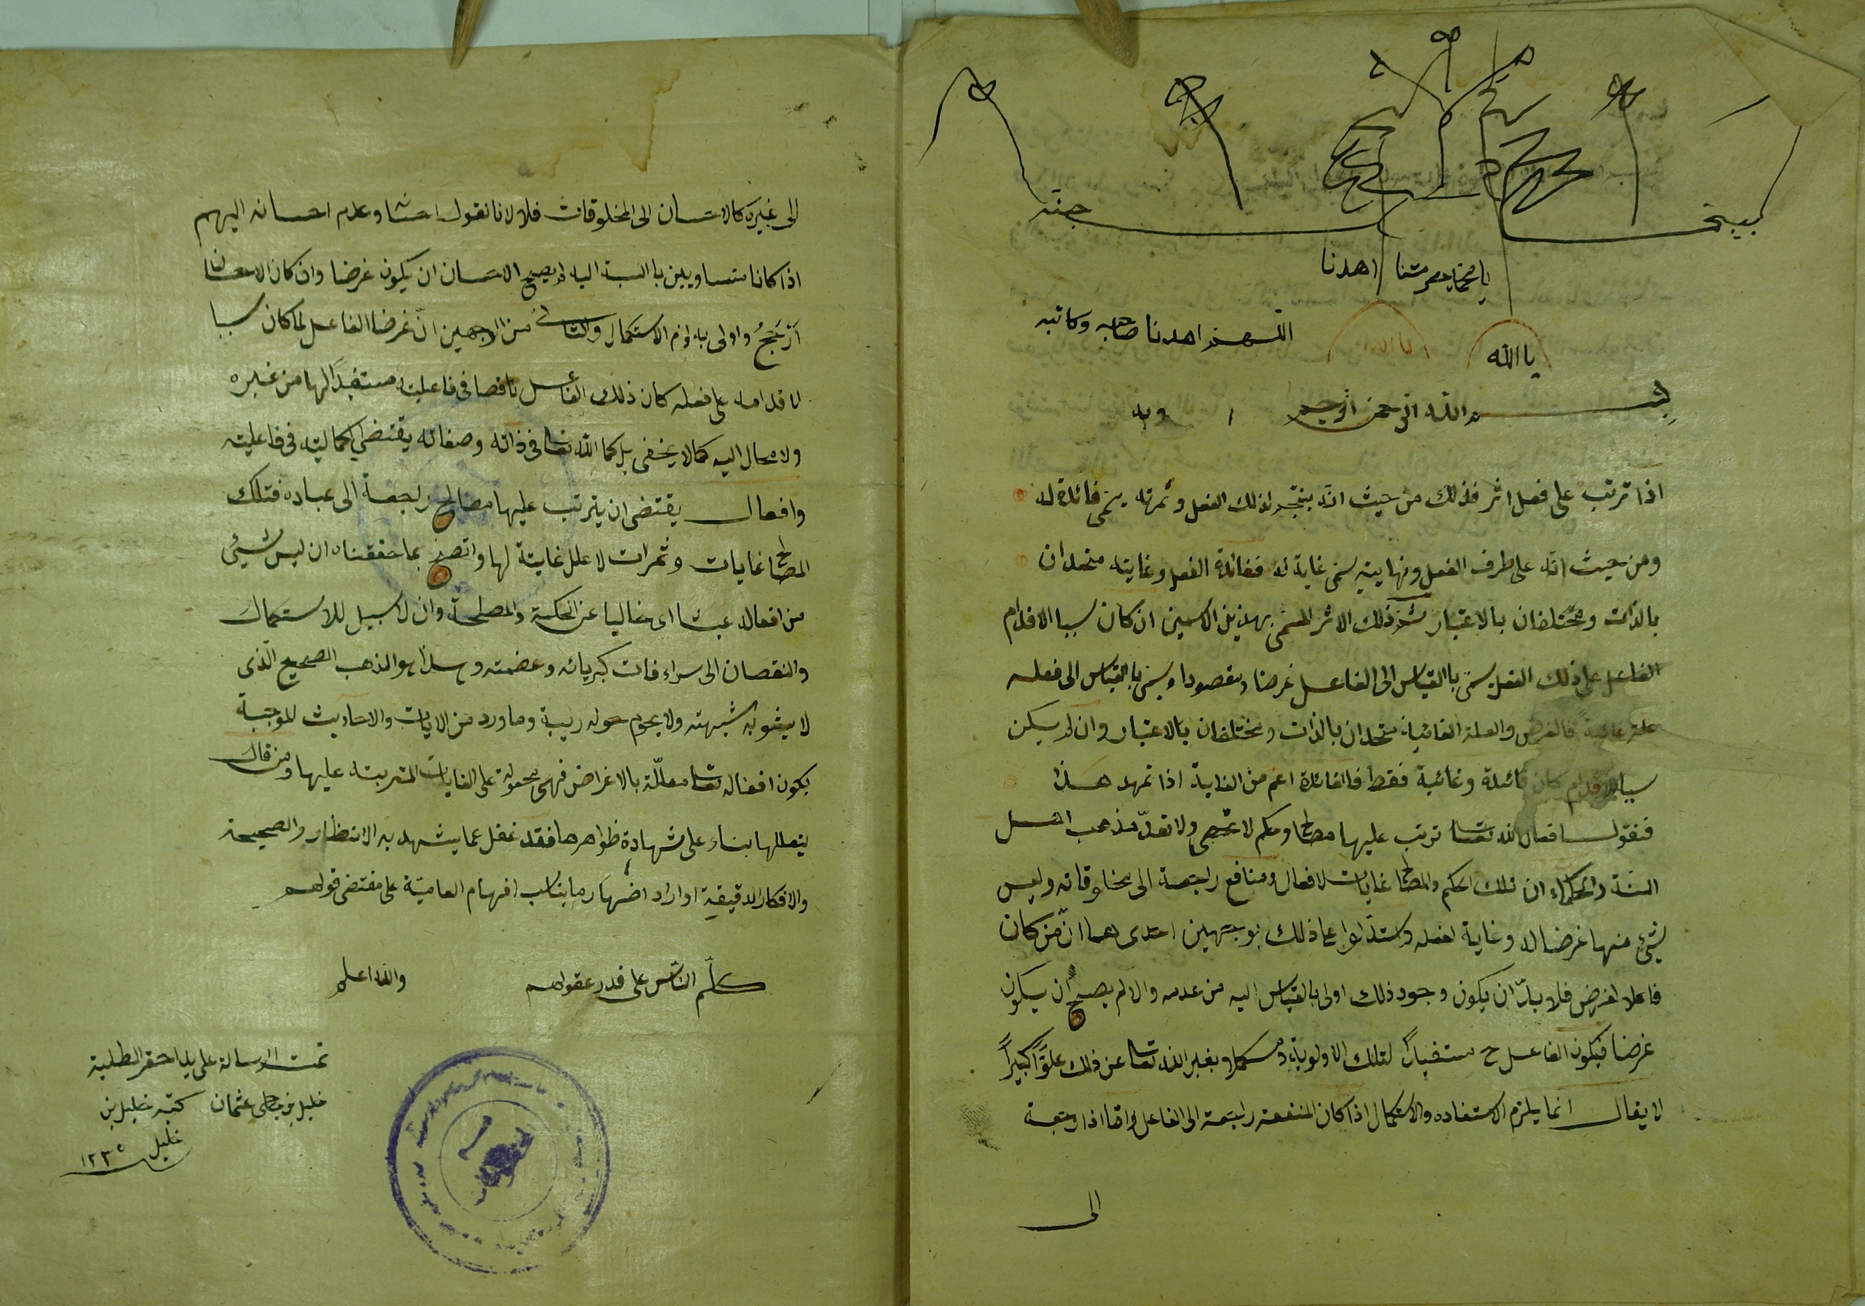 اهدنا
اللهم اهدنا صاحبه وكاتبه
يا الله
بسم الله الرحمن الرحيم وبه
اذا ترتب على فعل اثر فذلك من حيث انه ينتجه لذلك الفعل وثمرته يسمى فائدة له
ومن حيث انه على طرف الفعل ونهايته يسمى غاية له ففائدة الفعل وغايته متحدان
بالذات ومختلفان بالاعتبار ثم ذلك الاثر المسمى بهذين الاسمين ان كان سببا لاقدام
الفاعل على ذلك الفعل يسمى بالقياس الى الفاعل غرضا ومقصودا ويسمى بالقياس الى فعله
علة غائية فالغرض والعلة الغائية متحدان بالذات ومختلفان بالاعتبار وان لم يكن
سببا للاقدام كان فائدة وغائية فقط فالفائدة اعم من الغاية اذا تمهد هذا
فنقول افعال الله تعا ترتب عليها مصالح وحكم لا تحصى ولا تعد فذهب اهل
السنة والحكماء ان تلك الحكم والمصالح غايات لافعال ومنافع راجعة الى مخلوقاته وليس
شئ منها غرضا له وغاية لفعله واستدلوا على ذلك بوجهين احدى هما ان من كان
فاعلا لغرض فلا بد ان يكون وجود ذلك اولى بالقياس اليه من عدمه والا لم يصح ان يكون
غرضا فيكون الفاعل ح مستفيدا لتلك الاولوية ومستكملا بغير الله تعا عن ذلك علوا كبيرا
لا يقال انما يلزم الاستفاده والاستكمال اذا كان المنفعة راجعة الى الفاعل واما اذا رجعت
الى
الى غيره كالاحسان الى المخلوقات فلا لانا نقول احسانه وعدم احسانه اليهم
اذا كانا متساويين بالنسبة اليه لم يصح الاحسان ان يكون غرضا وان كان الاحسان
ارجح واولى به لزم الاستكمال والثانى من الوجهين ان غرض الفاعل لما كان سببا
لاقدامه على فعله كان ذلك الفاعل ناقصا فى فاعليته مستفيدا لها من غيره
ولا مجال اليه كما لا يخفى بل كمال الله تعا فى ذاته وصفاته يقتضى كماليته فى فاعليته
وافعال يقتضى ان يترتب عليها مصالح راجعة الى عباده فتلك
المصالح غايات وثمرات لا علل غاية لها واتضح بما حققناه ان ليس شئ
من افعاله عبثا اى خاليا عن الحكمة والمصلحة وان لا سبيل للاستكمال
والنقصان الى سراء فات كبريائه وعضمته وهذا هو المذهب الصحيح الذى
لا يشوبه شبهته ولا يحوم حوله ريبة وما ورد من الايات والاحاديث الموجبة
بكون افعاله تعا معللة بالاغراض فهى محمولة على الغايات المترتبة عليها ومن قال
بتعللها بناء على شهادة ظواهرها فقد غفل عما يشهد به الانظار الصحيحة
والافكار الدقيقة او اراد اضهار ما يناسب افهام العامية على مقتضى قولهم
كلم الناس على قدر عقولهم والله اعلم
تمت الرسالة على يد احقر الطلبة
خليل بن حاجى عثمان كتبه خليل بن
خليل ١٢٣٥